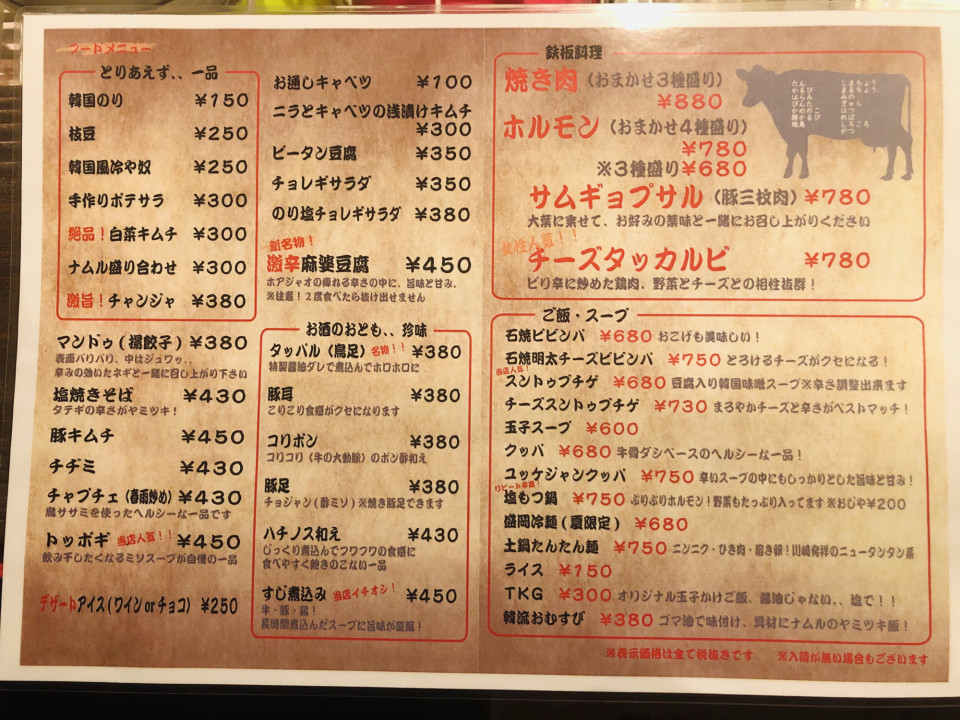 フードメニュー
とりあえず、、一品
韓国のり ¥150
枝豆 ¥250
韓国風冷や奴 ¥250
手作りポテサラ ¥300
絶品！白菜キムチ ¥300
ナムル盛り合わせ ¥300
激旨！チャンジャ ¥380
マンドゥ(揚餃子) ¥380
表面パリパリ、中はジュワッ、、
辛みの効いたネギと一緒に召し上がり下さい
塩焼きそば ¥430
タテギの辛さがヤミツキ！
豚キムチ ¥450
チヂミ ¥430
チャプチェ(春雨炒め) ¥430
鳥ササミを使ったヘルシーな一品です
トッポギ 当店人気！！ ¥450
飲み干したくなるミソスープが自慢の一品
デザートアイス(ワインorチョコ) ¥250
お通しキャベツ ¥100
ニラとキャベツの浅漬けキムチ
¥300
ピータン豆腐 ¥350
チョレギサラダ ¥350
のり塩チョレギサラダ ¥380
新名物！
激辛麻婆豆腐 ¥450
ホアジャオの痺れる辛さの中に、旨味と甘み。
※注意！2度食べたら抜け出せません
お酒のおとも、、珍味
タッパル(鳥足)名物！！ ¥380
特製醤油ダレで煮込んでホロホロに
豚耳 ¥380
こりこり食感がクセになります
コリポン ¥380
コリコリ(牛の大動脈)のポン酢和え
豚足 ¥380
チョジャン(酢ミソ)※焼き豚足できます
ハチノス和え ¥430
じっくり煮込んでフワフワの食感に
食べやすく飽きのこない一品
すじ煮込み 当店イチオシ！ ¥450
牛・豚・鶏！
長時間煮込んだスープに旨味が凝縮！
鉄板料理
焼き肉(おまかせ3種盛り)
¥880
ホルモン(おまかせ4種盛り)
¥780
※3種盛り¥680
サムギョプサル(豚三枚肉) ¥780
大葉に乗せて、お好みの薬味と一緒にお召し上がりください
女性人気！！
チーズタッカルビ ¥780
ピリ辛に炒めた鶏肉、野菜とチーズとの相性抜群！
ご飯・スープ
石焼ビビンバ ¥680 おこげも美味しい！
石焼明太チーズビビンバ ¥750 とろけるチーズがクセになる！
当店人気！
スントゥブチゲ ¥680 豆腐入り韓国味噌スープ※辛さ調整出来ます
チーズスントゥブチゲ ¥730 まろやかチーズと辛さがベストマッチ！
玉子スープ ¥600
クッパ ¥680 牛骨ダシベースのヘルシーな一品！
ユッケジャンクッパ ¥750 辛いスープの中にもしっかりとした旨味と甘み！
リピート率高！
塩もつ鍋 ¥750 ぷりぷりホルモン！野菜もたっぷり入ってます※おじや¥200
盛岡冷麺(夏限定) ¥680
土鍋たんたん麺 ¥750 ニンニク・ひき肉・溶き卵！川崎発祥のニュータンタン系
ライス ¥150
TKG ¥300 オリジナル玉子かけご飯、醤油じゃない、、塩で！！
韓流おむすび ¥380 ゴマ油で味付け、具材にナムルのヤミツキ飯！
※表示価格は全て税抜きです ※入荷が無い場合もございます